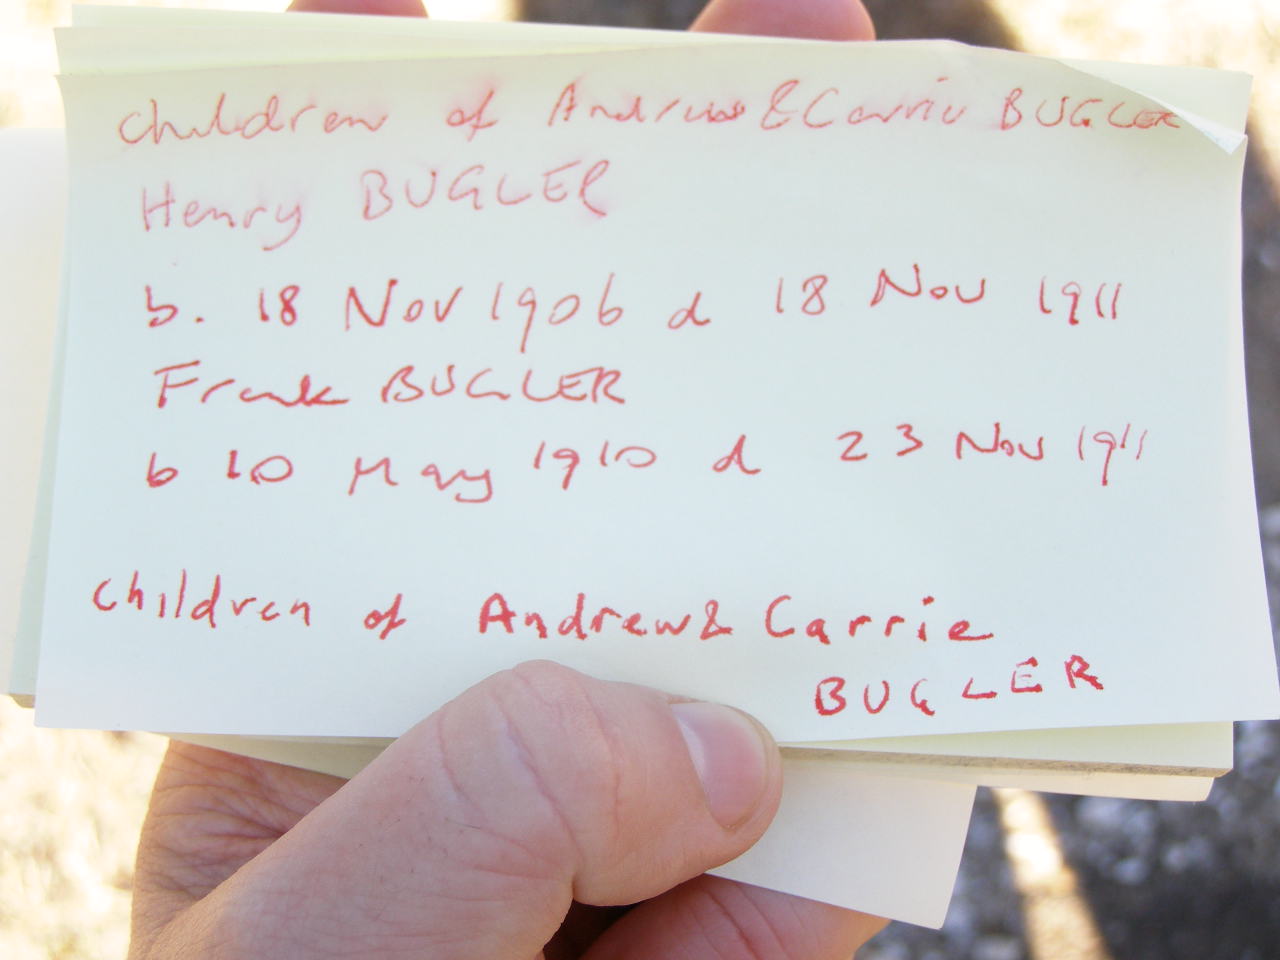 children of Andrew & Carrie BUGLER
Henry BUGLER
b. 18 Nov 1906 d 18 Nov 1911
Frank BUGLER
b 10 May 1910 d 23 Nov 1911
children of Andrew & Carrie
BUGLER